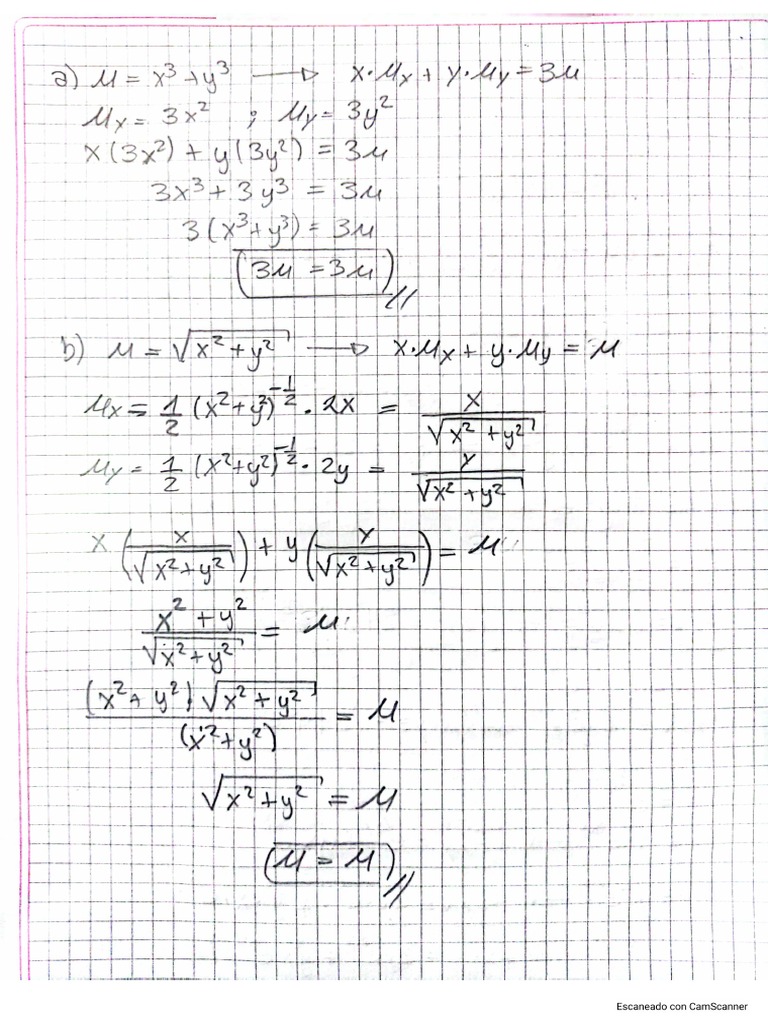 a) μ = x³ + y³ → x·μx + y·μy = 3μ
μx = 3x² ; μy = 3y²
x(3x²) + y(3y²) = 3μ
3x³ + 3y³ = 3μ
3(x³+y³) = 3μ
(3μ = 3μ)//
b) μ = √(x² + y²) → x·μx + y·μy = μ
μx = 1/2 (x²+y²)^(-1/2) · 2x = x/√(x² + y²)
μy = 1/2 (x²+y²)^(-1/2) · 2y = y/√(x² + y²)
x (x/√(x²+y²)) + y (y/√(x²+y²)) = μ
(x² + y²)/√(x²+y²) = μ
(x²+ y²)√(x² + y²)/(x²+y²) = μ
√(x²+y²) = μ
(μ = μ)//
Escaneado con CamScanner